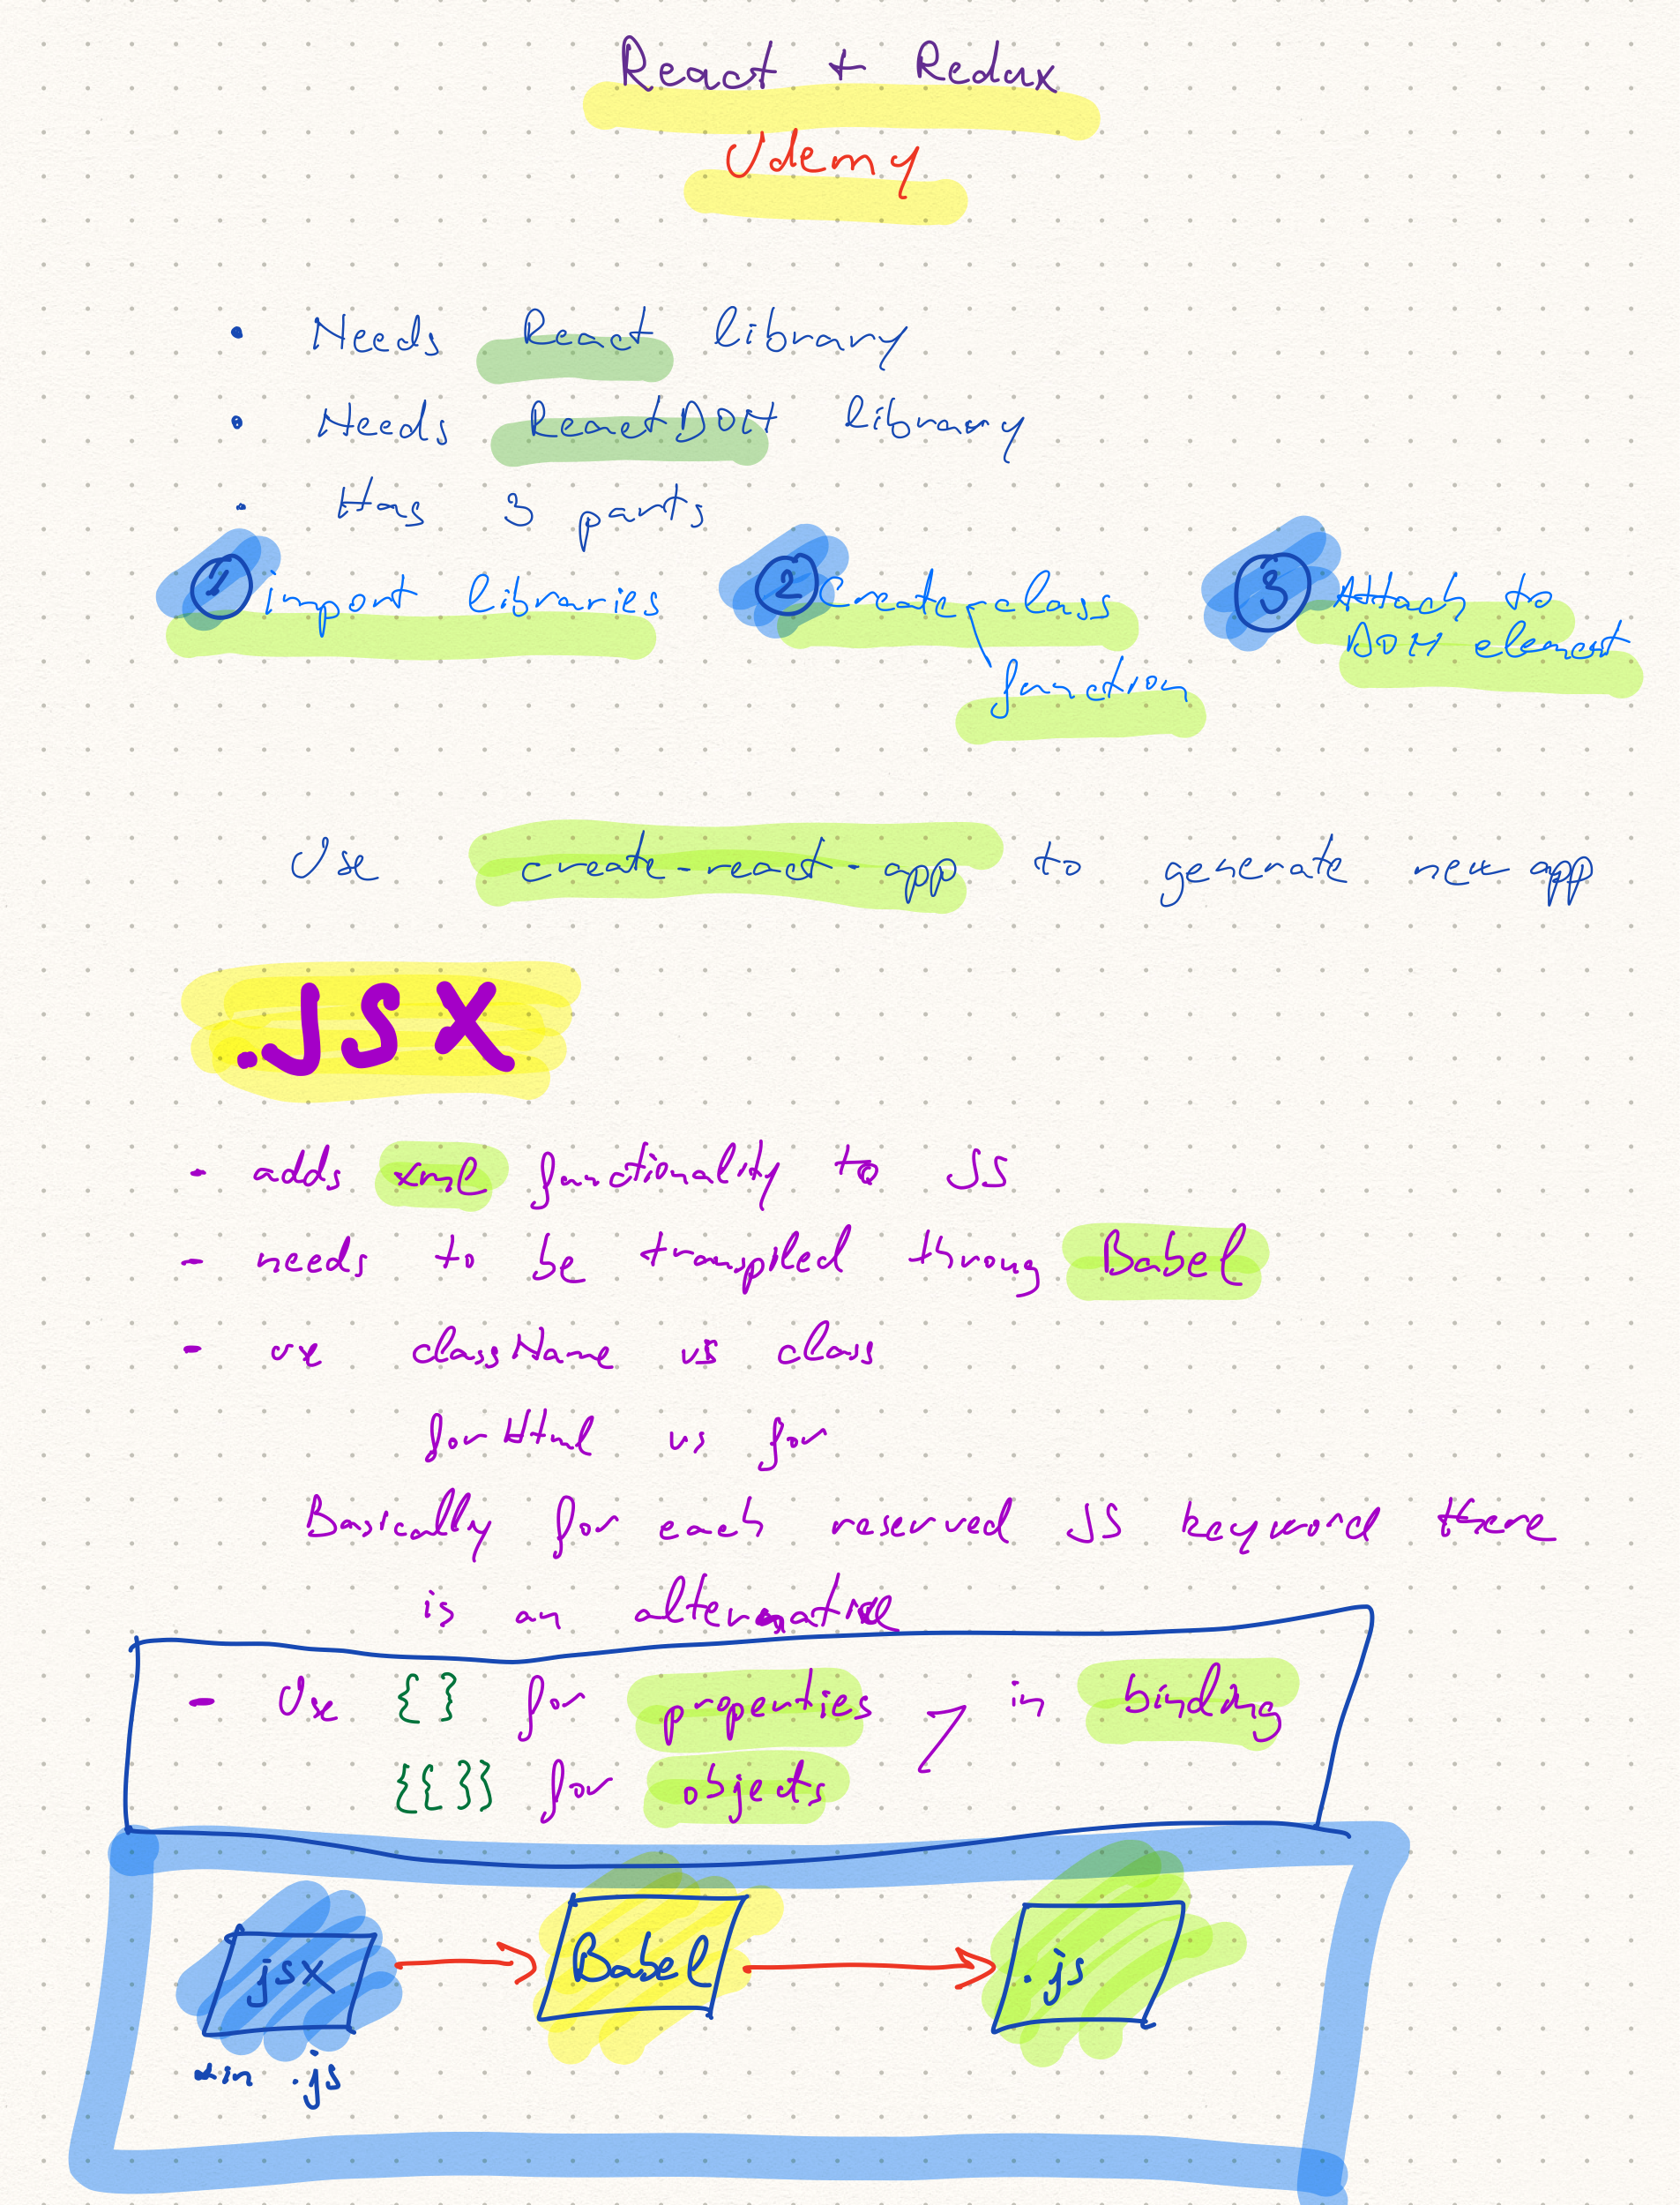 React + Redux
Udemy
• Needs React library
• Needs ReactDOM library
• Has 3 parts
1 import libraries
2 Create class
function
3 Attach to
DOM element
Use create-react-app to generate new app
.JSX
- adds xml functionality to JS
- needs to be transpiled throug Babel
- use className vs class
forHtml vs for
Basically for each reserved JS keyword there
is an alternative
- Use { } for properties in binding
{{ }} for objects
jsx
in .js
Babel
.js